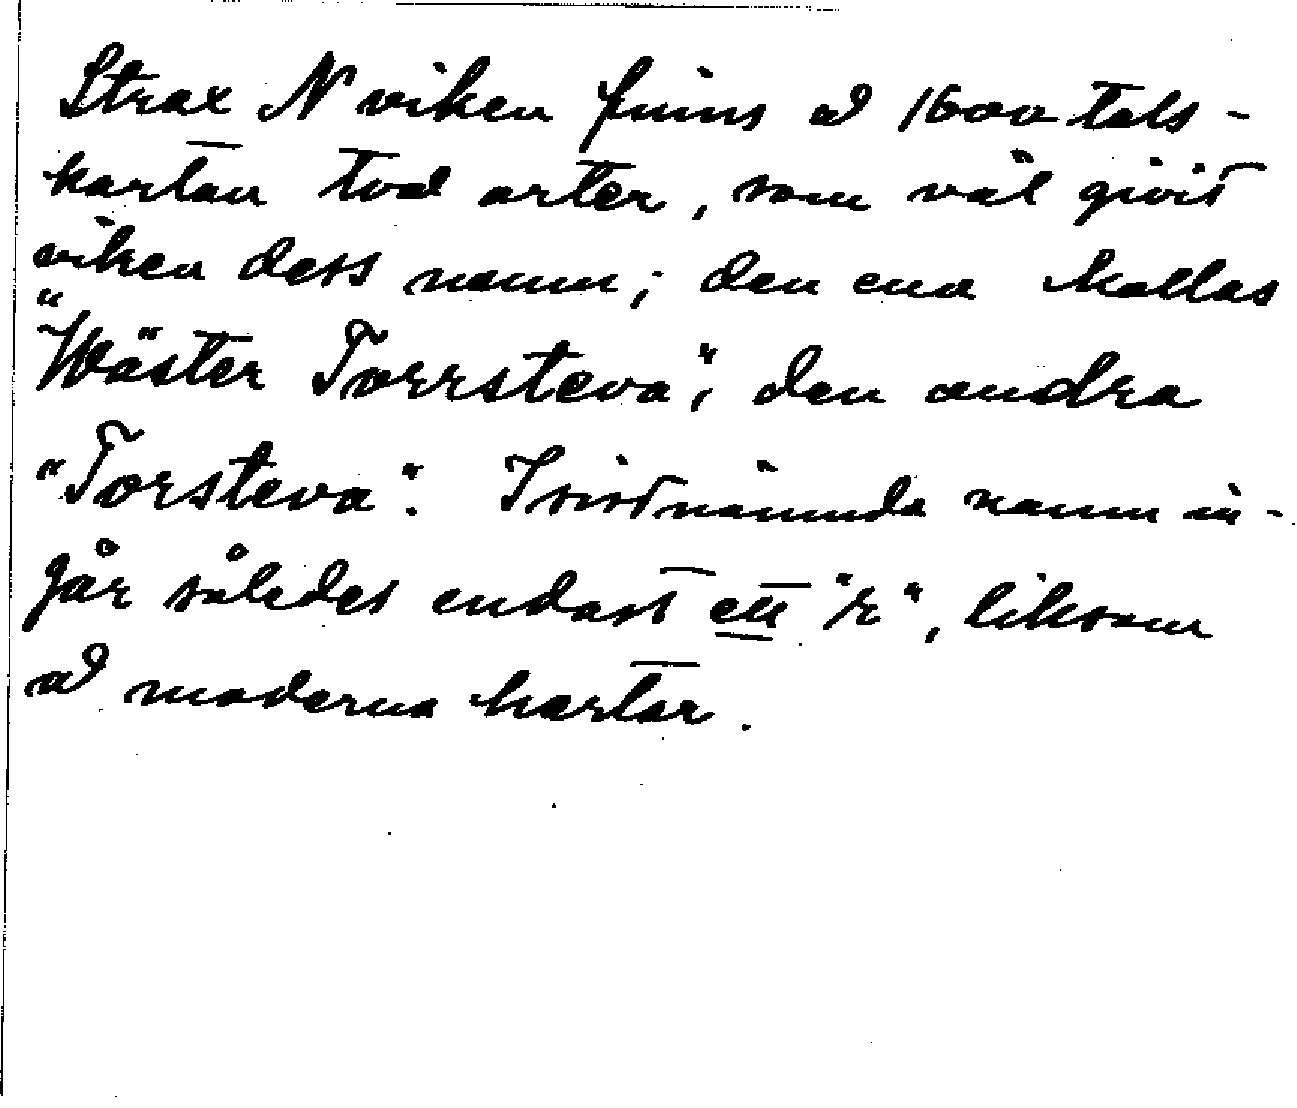 Strax N viken finns å 1600 tals-
kartan två orter, som väl givit
viken dess namn; den ena kallas
"Wäster Torrsteva"; den andra
"Torsteva". I sistnämnda namn in-
går således endast ett "r", liksom
å moderna kartor.